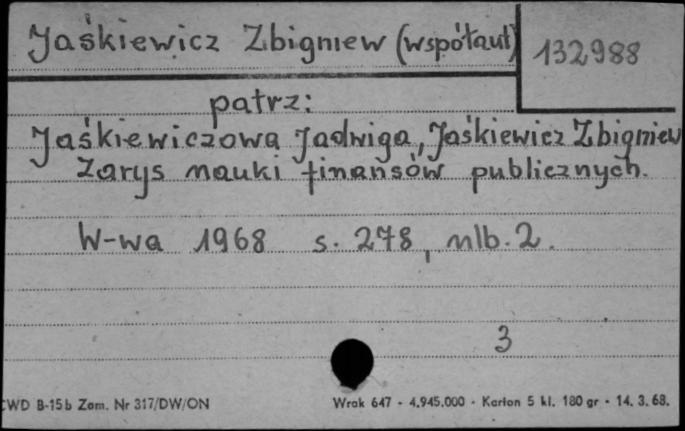 Jaśkiewicz Zbigniew (współaut)
132988
patrz:
Jaśkiewiczowa Jadwiga, Jaśkiewicz Zbigniew
Zarys nauki finansów publicznych.
W-wa 1968 s. 278, nlb. 2.
3
CWD B-15b Zam. Nr 317/DW/ON
Wrak 647 - 4.945.000 - Karton 5 kl. 180 gr - 14. 3. 68.